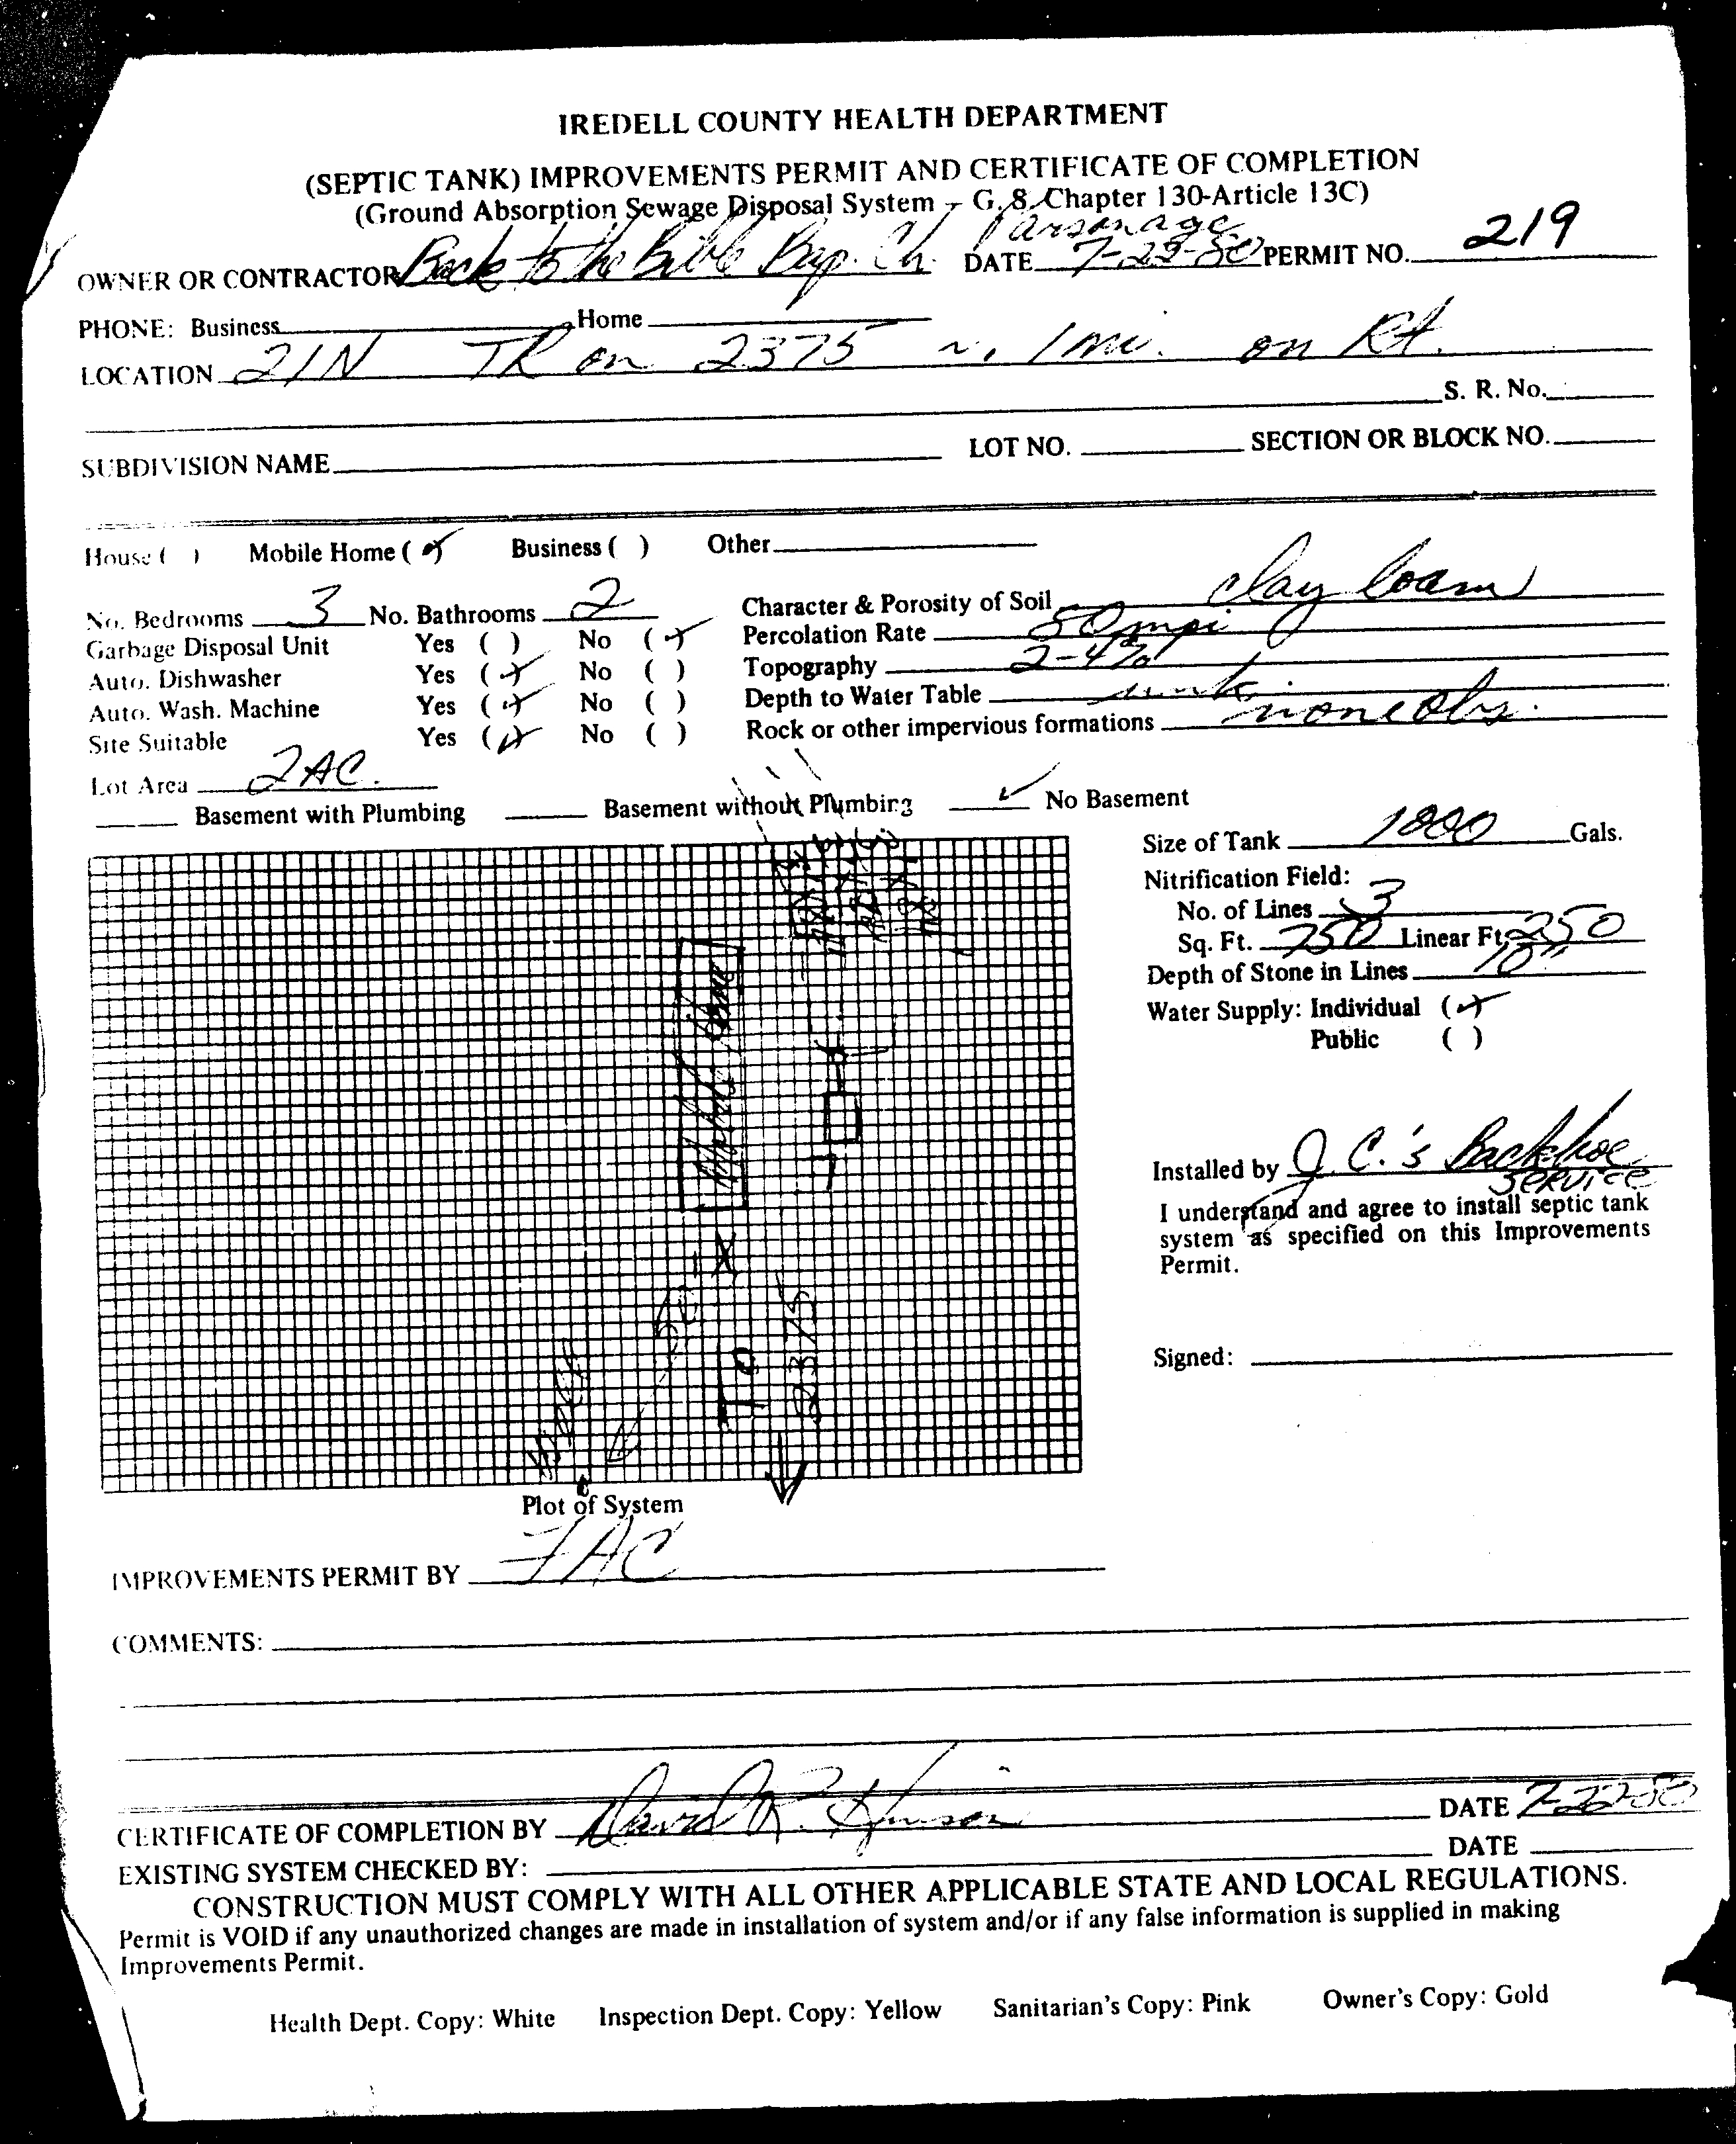 IREDELL COUNTY HEALTH DEPARTMENT
(SEPTIC TANK) IMPROVEMENTS PERMIT AND CERTIFICATE OF COMPLETION
(Ground Absorption Sewage Disposal System - G. S. Chapter 130-Article 13C)
Parsonage
OWNER OR CONTRACTOR Back to the Bible Bap. Ch. DATE 7-22-80 PERMIT NO. 219
PHONE: Business Home
LOCATION 21N TR on 2375 ~ 1 mi. on Rt.
S. R. No.
SUBDIVISION NAME LOT NO. SECTION OR BLOCK NO.
House ( ) Mobile Home ( ✓ ) Business ( ) Other
No. Bedrooms 3 No. Bathrooms 2 Character & Porosity of Soil clay loam
Garbage Disposal Unit Yes ( ) No ( ✓ ) Percolation Rate 50 mpi
Auto. Dishwasher Yes ( ✓ ) No ( ) Topography 2-4%
Auto. Wash. Machine Yes ( ✓ ) No ( ) Depth to Water Table
Site Suitable Yes ( ✓ ) No ( ) Rock or other impervious formations none obs.
Lot Area 2 AC.
Basement with Plumbing Basement without Plumbing ✓ No Basement
Size of Tank 1000 Gals.
Nitrification Field:
No. of Lines 3
Sq. Ft. 750 Linear Ft. 250
Depth of Stone in Lines 10"
Water Supply: Individual ( ✓ )
Public ( )
Mobile Home
Installed by J. C.'s Backhoe
Service
I understand and agree to install septic tank
system as specified on this Improvements
Permit.
To
2375
Signed:
Plot of System
IMPROVEMENTS PERMIT BY
COMMENTS:
CERTIFICATE OF COMPLETION BY David R. DATE 7-22-80
EXISTING SYSTEM CHECKED BY: DATE
CONSTRUCTION MUST COMPLY WITH ALL OTHER APPLICABLE STATE AND LOCAL REGULATIONS.
Permit is VOID if any unauthorized changes are made in installation of system and/or if any false information is supplied in making
Improvements Permit.
Health Dept. Copy: White Inspection Dept. Copy: Yellow Sanitarian's Copy: Pink Owner's Copy: Gold